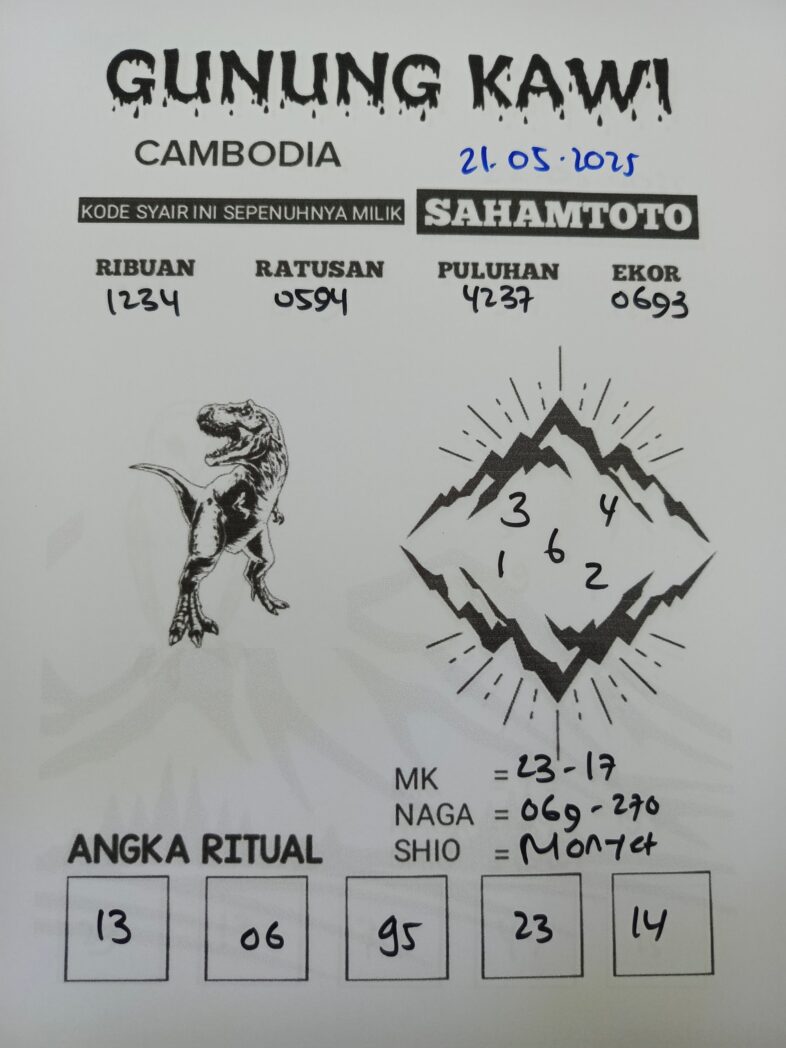 GUNUNG KAWI
CAMBODIA 21.05.2025
KODE SYAIR INI SEPENUHNYA MILIK SAHAMTOTO
RIBUAN RATUSAN PULUHAN EKOR
1234 0594 4237 0693
3 4
6
1 2
MK = 23-17
NAGA = 069-270
SHIO = Monyet
ANGKA RITUAL
13 06 95 23 14